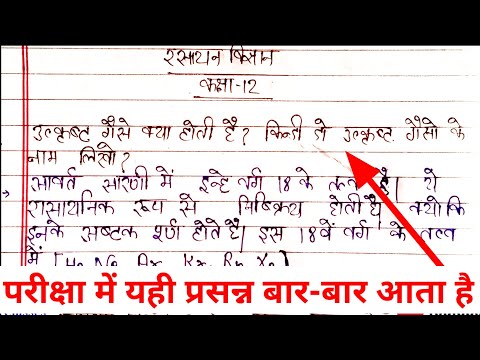 रसायन विज्ञान
कक्षा-12
उत्कृष्ट गैसे क्या होती है? किन्ही दो उत्कृष्ट गैसो के
नाम लिखो?
→ आवर्त सारणी में इन्हे वर्ग 18 के तत्व है। ये
रासायनिक रूप से निष्क्रिय होती है क्योकि
इनके अष्टक पूर्ण होते है। इस 18वें वर्ग के तत्व
में [He, Ne, Ar, Kr, Rn, Xe]
परीक्षा में यही प्रसन्न बार-बार आता है